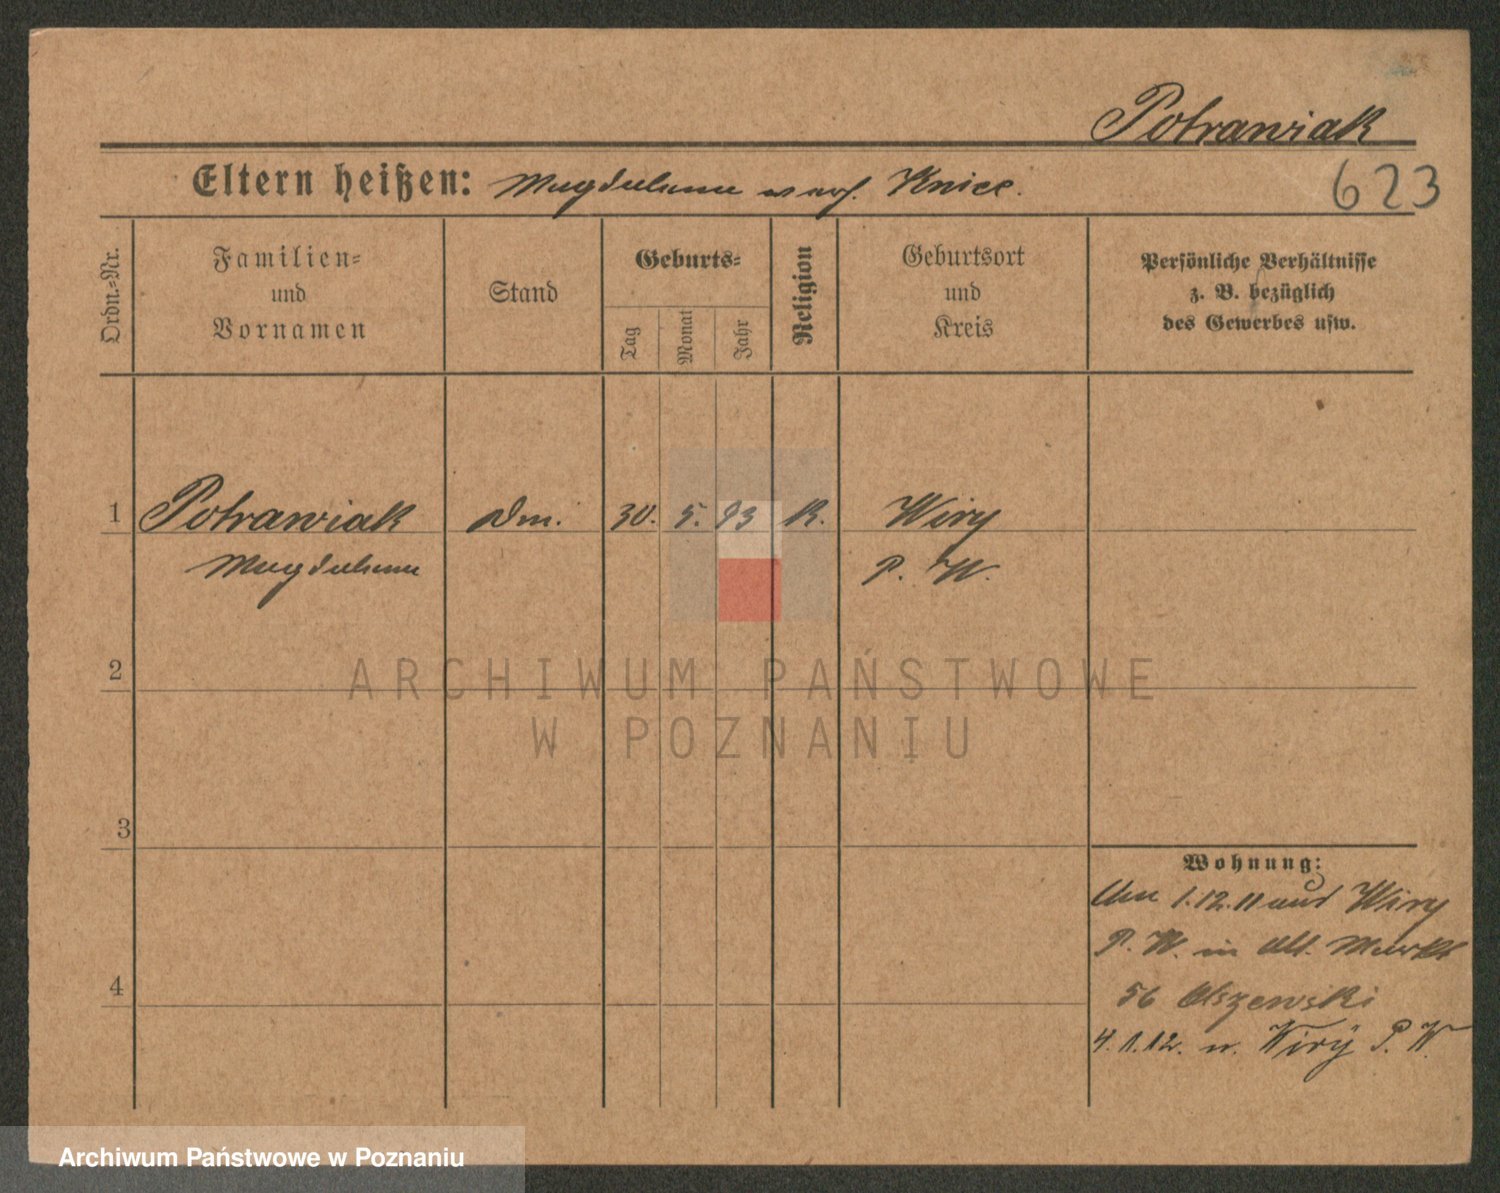 Potrawiak
Eltern heißen: Magdalena verh. Kniec.
623
Ordn.-Nr.
Familien-
und
Vornamen
Stand
Geburts-
Tag
Monat
Jahr
Religion
Geburtsort
und
Kreis
Persönliche Verhältnisse
z. B. bezüglich
des Gewerbes usw.
1 Potrawiak Dm. 30. 5. 93 K. Wiry
Magdalena P. W.
2
3
4
Wohnung:
Am 1.12.11 aus Wiry
P. W. in Alt. Markt
56 Olszewski
4.1.12. n. Wirÿ P. W.
ARCHIWUM PAŃSTWOWE
W POZNANIU
Archiwum Państwowe w Poznaniu